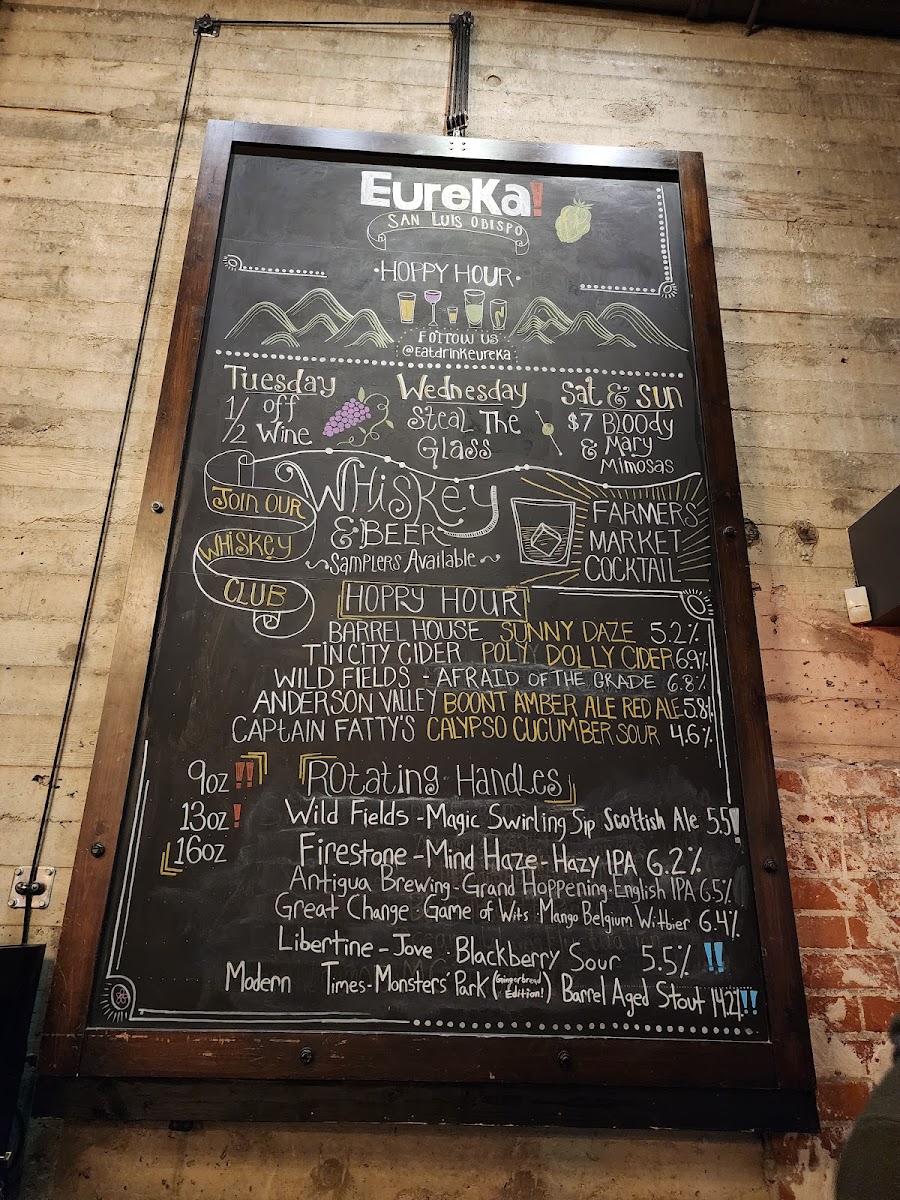 EureKa!
SAN LUIS OBISPO
·HOPPY HOUR·
FOLLOW US
@EatdrinkeureKa
Tuesday
1/2 off Wine
Wednesday
Steal The
Glass
Sat & Sun
$7 Bloody
& Mary
Mimosas
JOIN OUR
WHISKEY
CLUB
WHiSKey
& BEER
Samplers Available
FARMERS
MARKET
COCKTAIL
HOPPY HOUR
BARREL HOUSE SUNNY DAZE 5.2%
TIN CITY CIDER POLY DOLLY CIDER 6.9%
WILD FIELDS - AFRAID OF THE GRADE 6.8%
ANDERSON VALLEY BOONT AMBER ALE RED ALE 5.8%
CAPTAIN FATTY'S CALYPSO CUCUMBER SOUR 4.6%
9oz !!
13oz !
16oz
Rotating Handles
Wild Fields - Magic Swirling Sip Scottish Ale 5.5!
Firestone - Mind Haze - Hazy IPA 6.2%
Antigua Brewing - Grand Hoppening · English IPA 6.5%
Great Change · Game of Wits · Mango Belgium Witbier 6.4%
Libertine - Jove · Blackberry Sour 5.5% !!
Modern Times - Monsters' Park (Gingerbread Edition!) Barrel Aged Stout 14.2% !!